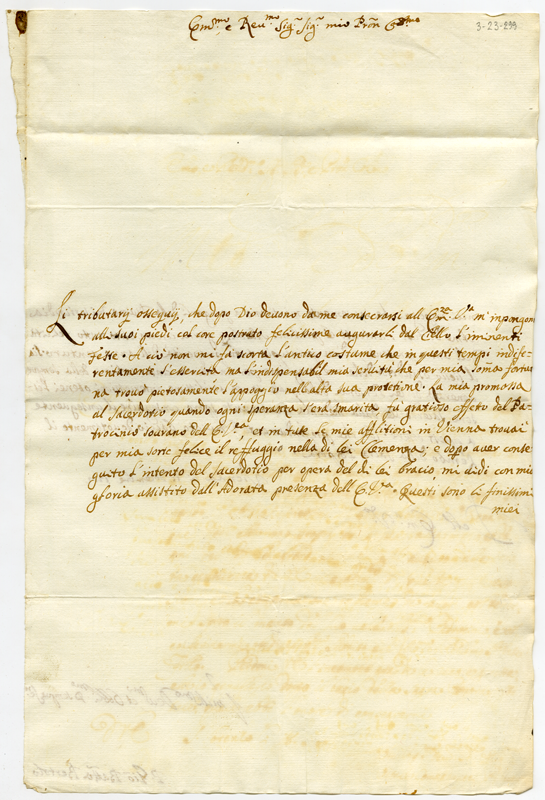 Em.mo e Rev.mo Sig.r Sig.r mio Pron Col.mo
3-23-299
Li tributarij ossequij, che dopo Dio devono da me consecrarsi all Em.za V.ra m'inpongon
alli suoi piedi col core postrato felicissime augurarli dal Ciello l'iminenti
feste. A ciò non mi fà scorta l'antico costume che in questi tempi indefe-
rentamente s'esserata ma l'indispensabil mia servitù che per mia soma fortu-
na trovò pietosamente l'appoggio nell'alta sua protetione. La mia promossa
al sacerdotio quando ogni speranza s'era smarita, fù gratioso effeto del Pa-
trocinio sourano dell E. V.ra, et in tute le mie afflitioni in Vienna trouai
per mia sorte felice il reffuggio nella di lei Clemenza; e dopo auer conse-
guito l'intento del sacerdotio per opera del di lei bracio, mi vidi con mia
gloria assistito dall'Adorata presenza dell E. V.ra. Questi sono li finissimi
miei